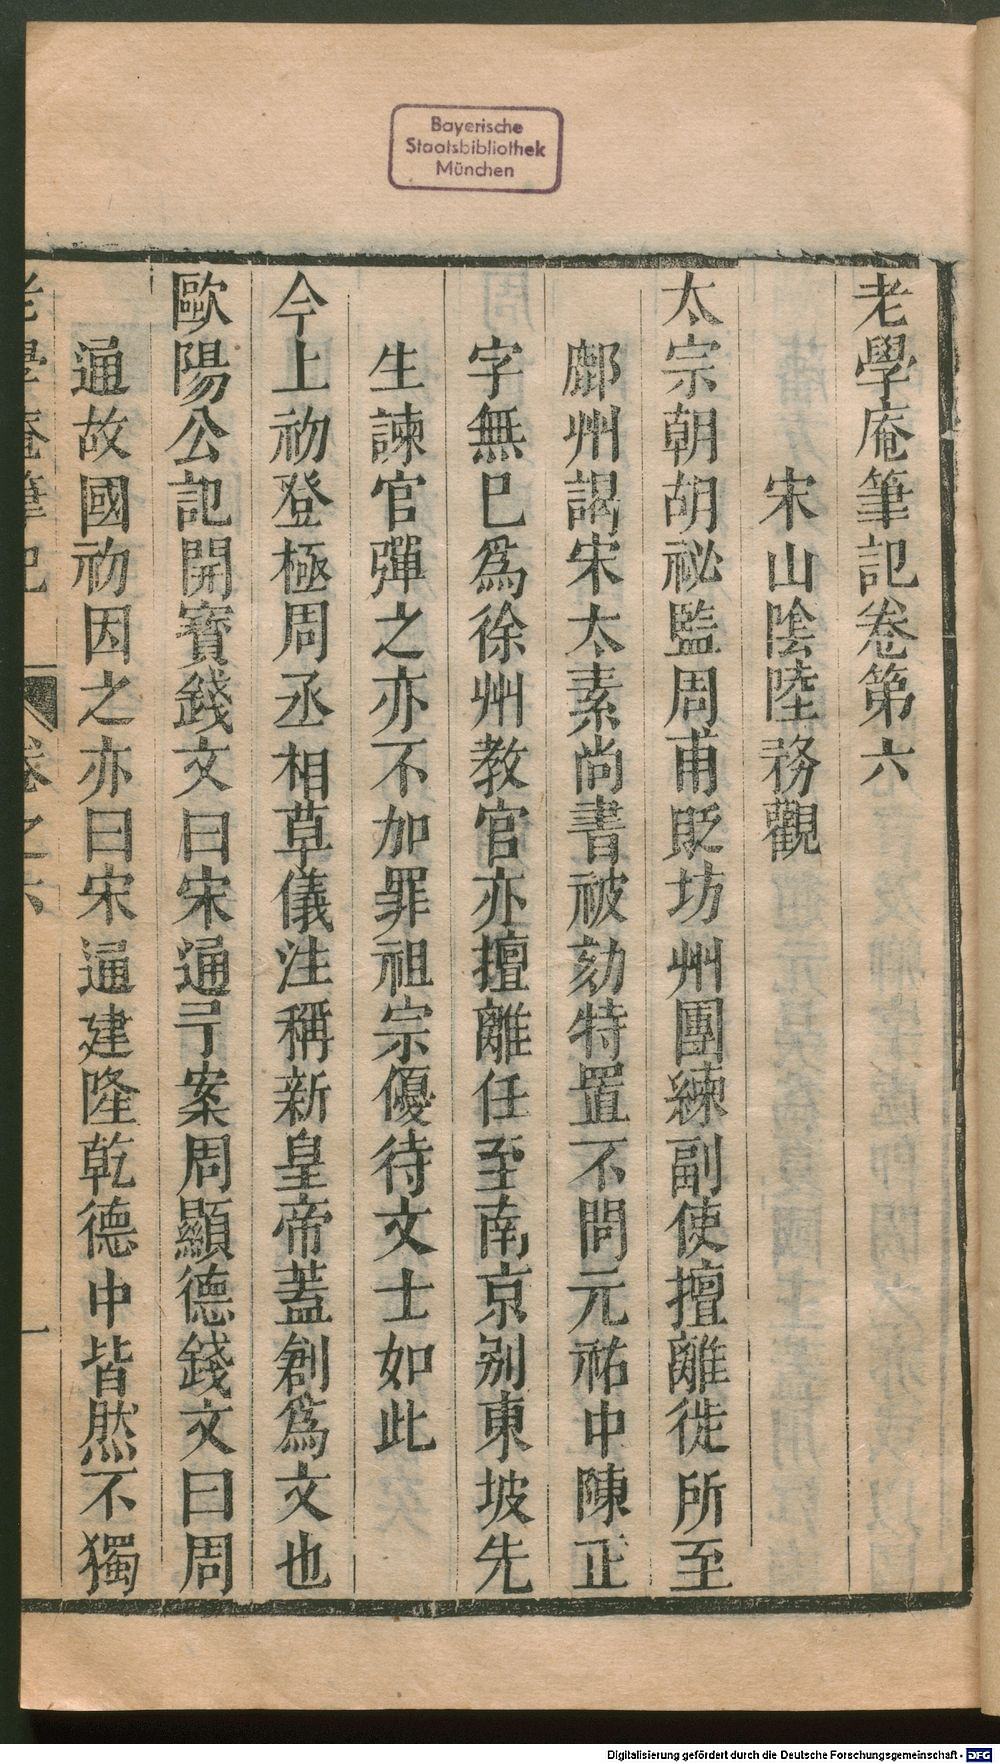 Bayerische
Staatsbibliothek
München
老學庵筆記卷第六
宋山陰陸務觀
太宗朝胡祕監周甫貶坊州團練副使擅離徙所至
鄜州謁宋太素尚書被劾特置不問元祐中陳正
字無巳爲徐州教官亦擅離任至南京別東坡先
生諫官彈之亦不加罪祖宗優待文士如此
今上初登極周丞相草儀注稱新皇帝蓋創爲文也
歐陽公記開寶錢文曰宋通予案周顯德錢文曰周
通故國初因之亦曰宋通建隆乾德中皆然不獨
老學庵筆記
卷之六
一
Digitalisierung gefördert durch die Deutsche Forschungsgemeinschaft - DFG